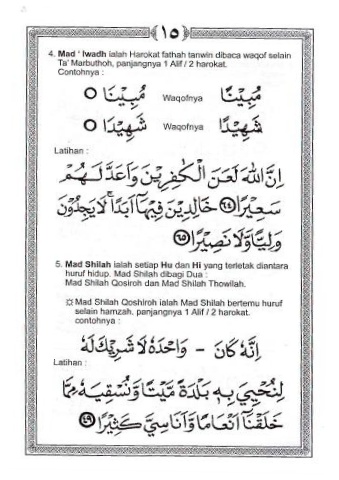 ١٥
4. Mad ' Iwadh ialah Harokat fathah tanwin dibaca waqof selain
Ta' Marbuthoh, panjangnya 1 Alif / 2 harokat.
Contohnya :
مُبِيْنًا Waqofnya مُبِيْنَا ○
شَهِيْدًا Waqofnya شَهِيْدَا ○
Latihan :
اِنَّ اللهَ لَعَنَ الْكٰفِرِيْنَ وَاَعَدَّ لَهُمْ
سَعِيْرًا ٦٤ خَالِدِيْنَ فِيْهَا اَبَدًا ۚ لَا يَجِدُوْنَ
وَلِيًّا وَّلَا نَصِيْرًا ٦٥
5. Mad Shilah ialah setiap Hu dan Hi yang terletak diantara
huruf hidup. Mad Shilah dibagi Dua :
Mad Shilah Qosiroh dan Mad Shilah Thowilah.
¤ Mad Shilah Qoshiroh ialah Mad Shilah bertemu huruf
selain hamzah. panjangnya 1 Alif / 2 harokat.
contohnya :
اِنَّهٗ كَانَ - وَاحْدَهٗ لَا شَرِيْكَ لَهٗ
Latihan :
لِنُحْيِيَ بِهٖ بَلْدَةً مَّيْتًا وَّنُسْقِيَهٗ مِمَّا
خَلَقْنَآ اَنْعَامًا وَّاَنَاسِيَّ كَثِيْرًا ٤٩